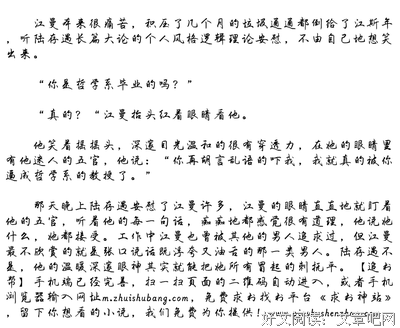 江曼本来很痛苦，积压了几个月的垃圾通通都倒给了江斯年
，听陆存遇长篇大论的个人风格逻辑理论安慰，不由自己地想笑
出来。
“你是哲学系毕业的吗？”
“真的？“江曼抬头红着眼睛看他。
他笑着摇摇头，深邃目光温和的很有穿透力，在她的眼睛里
有他迷人的五官，他说：“你再胡言乱语的吓我，我就真的被你
逼成哲学系的教授了。”
那天晚上陆存遇安慰了江曼许多，江曼的眼睛直直地就盯着
他的五官，听着他的每一句话，痴痴地都感觉很有道理，他说她
什么，她都接受。工作中江曼也曾被其他的男人追求过，但江曼
最不欣赏的就是张口说话既浮夸又油舌的那一类男人。陆存遇不
是，他的温暖深邃眼神其实就能把她所有冒起的刺抚平。【追书
帮】手机端已经完善，扫一扫页面的二维码自动进入，或者手机
浏览器输入网址m.zhuishubang.com，免费求书找书平台《求书神站》
，留下你想看的小说，我们免费为你提供！www.zhuishushenzhan.com
好文阅读：文章吧网